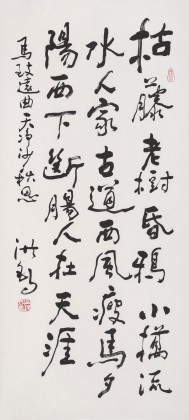 枯藤老樹昏鴉小橋流
水人家古道西風瘦馬夕
陽西下斷腸人在天涯
馬致遠曲天净沙秋思
洪